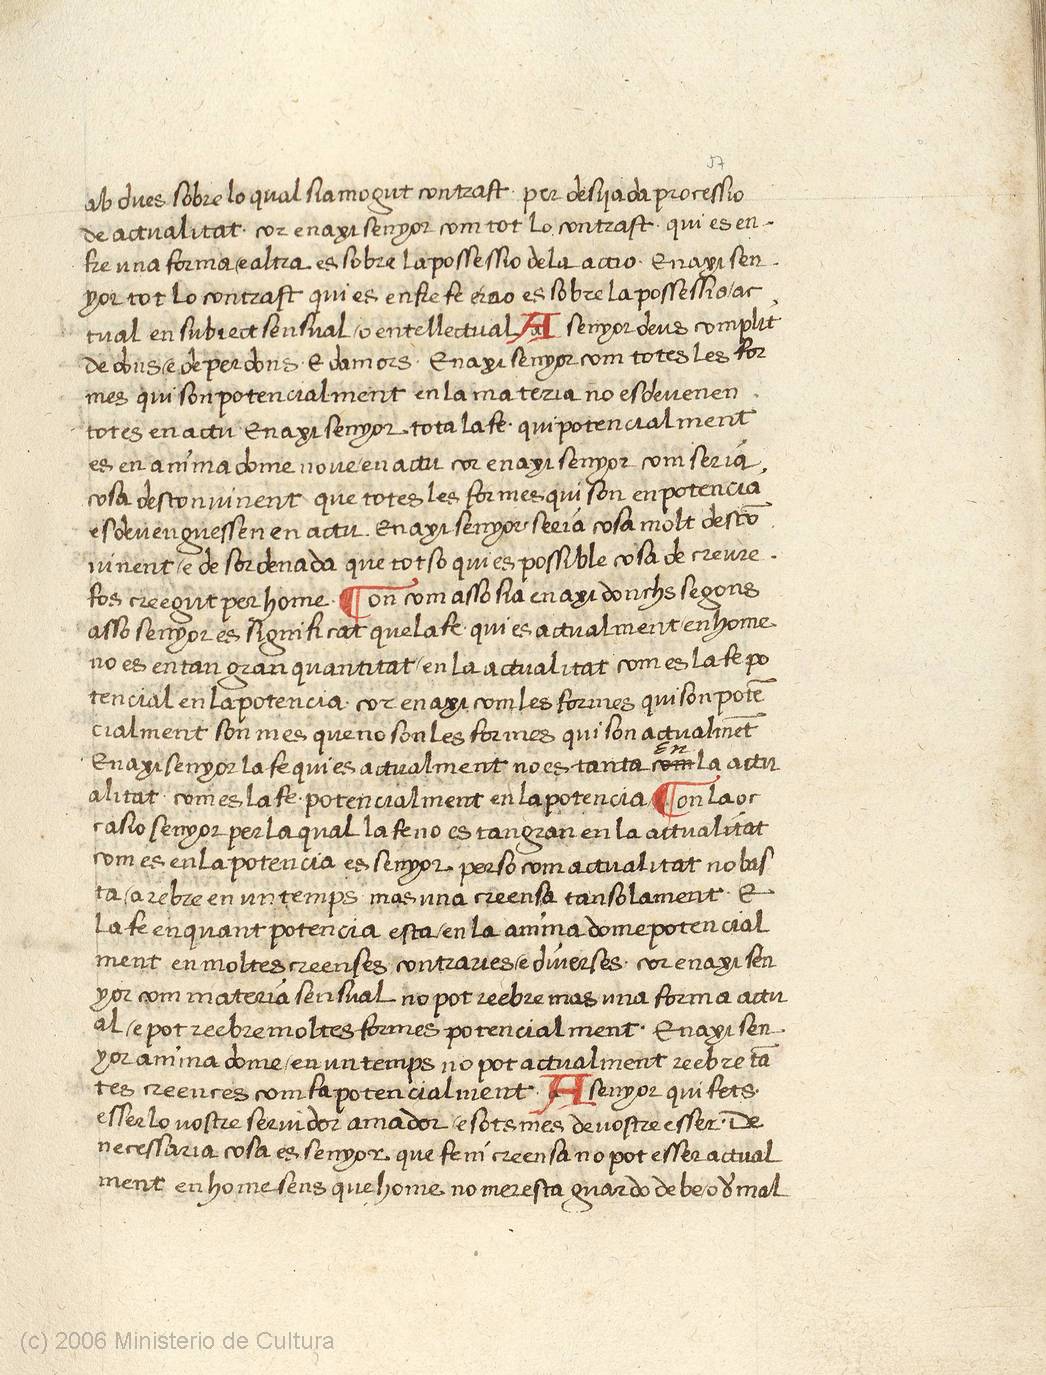 57
ab dues sobre lo qual sia mogut contrast · per desijada processio
de actualitat · cor enaxi senyor com tot lo contrast · qui es en-
tre una forma /e altra es sobre la possessio dela actio · Enaxi sen-
yor tot lo contrast qui es entre fe e rao es sobre la possessio /ac
tual en subiect sensual /o entellectual A senyor deus complit
de dons /e de perdons · E damors · Enaxi senyor com totes les for
mes qui son potencialment en la materia no esdevenen
totes en actu Enaxi senyor tota la fe · qui potencialment
es en anima dome no ve /en actu cor enaxi senyor com seria
cosa desconvinent que totes les formes qui son en potencia
esdevenguessen en actu. Enaxi senyor seria cosa molt descō
vinent /e desordenada que tot so qui es possible cosa de creure ·
fos creegut per home · ¶ On com asso sia enaxi donchs segons
asso senyor es significat que la fe · qui es actualment /en home
no es en tan gran quantitat /en la actualitat com es la fe po
tencial en la potencia · cor enaxi com les formes qui son potē
cialment son mes que no son les formes qui son actualmēt
Enaxi senyor la fe qui es actualment no es tanta com en la actu
alitat · com es la fe · potencialment en la potencia ¶ On la oc
casio senyor per la qual la fe no es tan gran en la actualitat
com es en la potencia es senyor per so com actualitat no bas
ta /a rebre en un temps mas una creensa tansolament · E
la fe en quant potencia esta /en la anima dome potencial
ment en moltes creenses contraries /e diverses · cor enaxi sen
yor com materia sensual no pot reebre mas una forma actu
al /e pot reebre moltes formes potencialment · Enaxi sen-
yor anima dome /en un temps no pot actualment reebre tā
tes creences com fa potencialment · A senyor qui fets
esser lo vostre servidor amador /e sotsmes de vostre esser · De
necessaria cosa es senyor que fe ni creensa no pot esser actual
ment en home sens que home no meresca guardo de be /o d mal
(c) 2006 Ministerio de Cultura